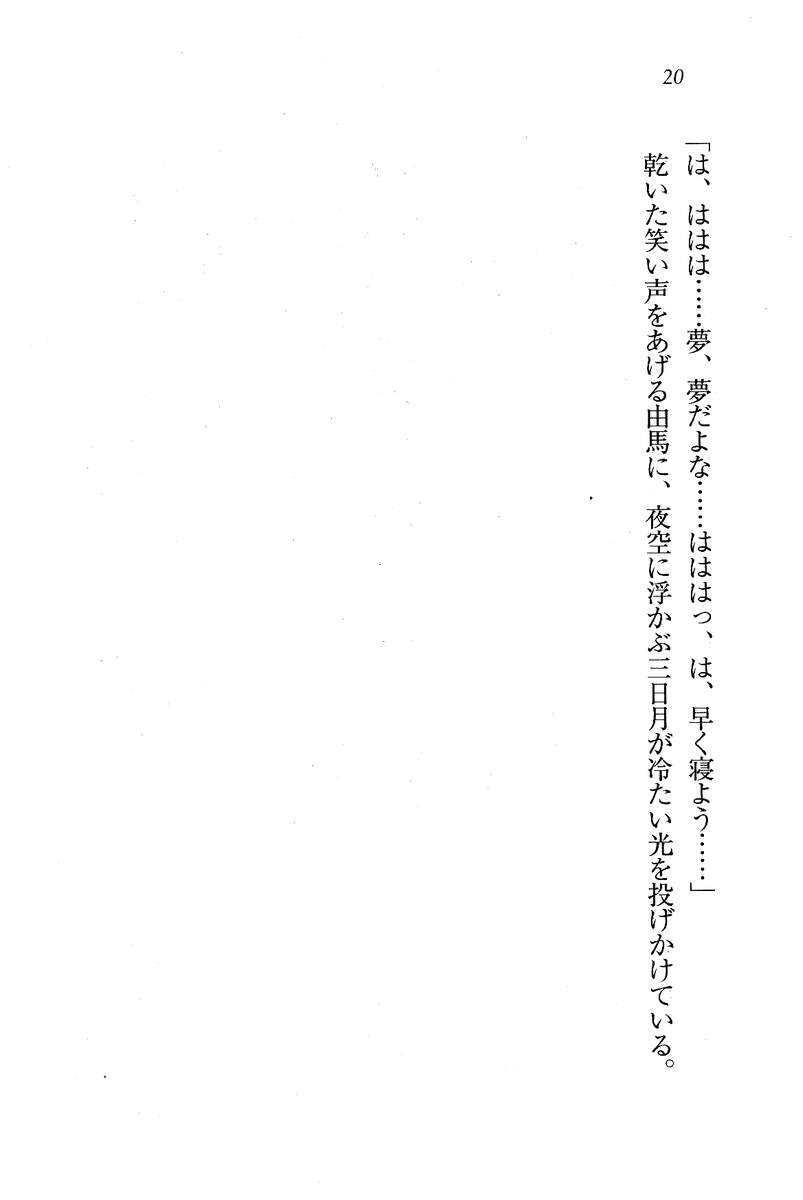 20
「は、ははは……夢、夢だよな……はははっ、は、早く寝よう……」
乾いた笑い声をあげる由馬に、夜空に浮かぶ三日月が冷たい光を投げかけている。